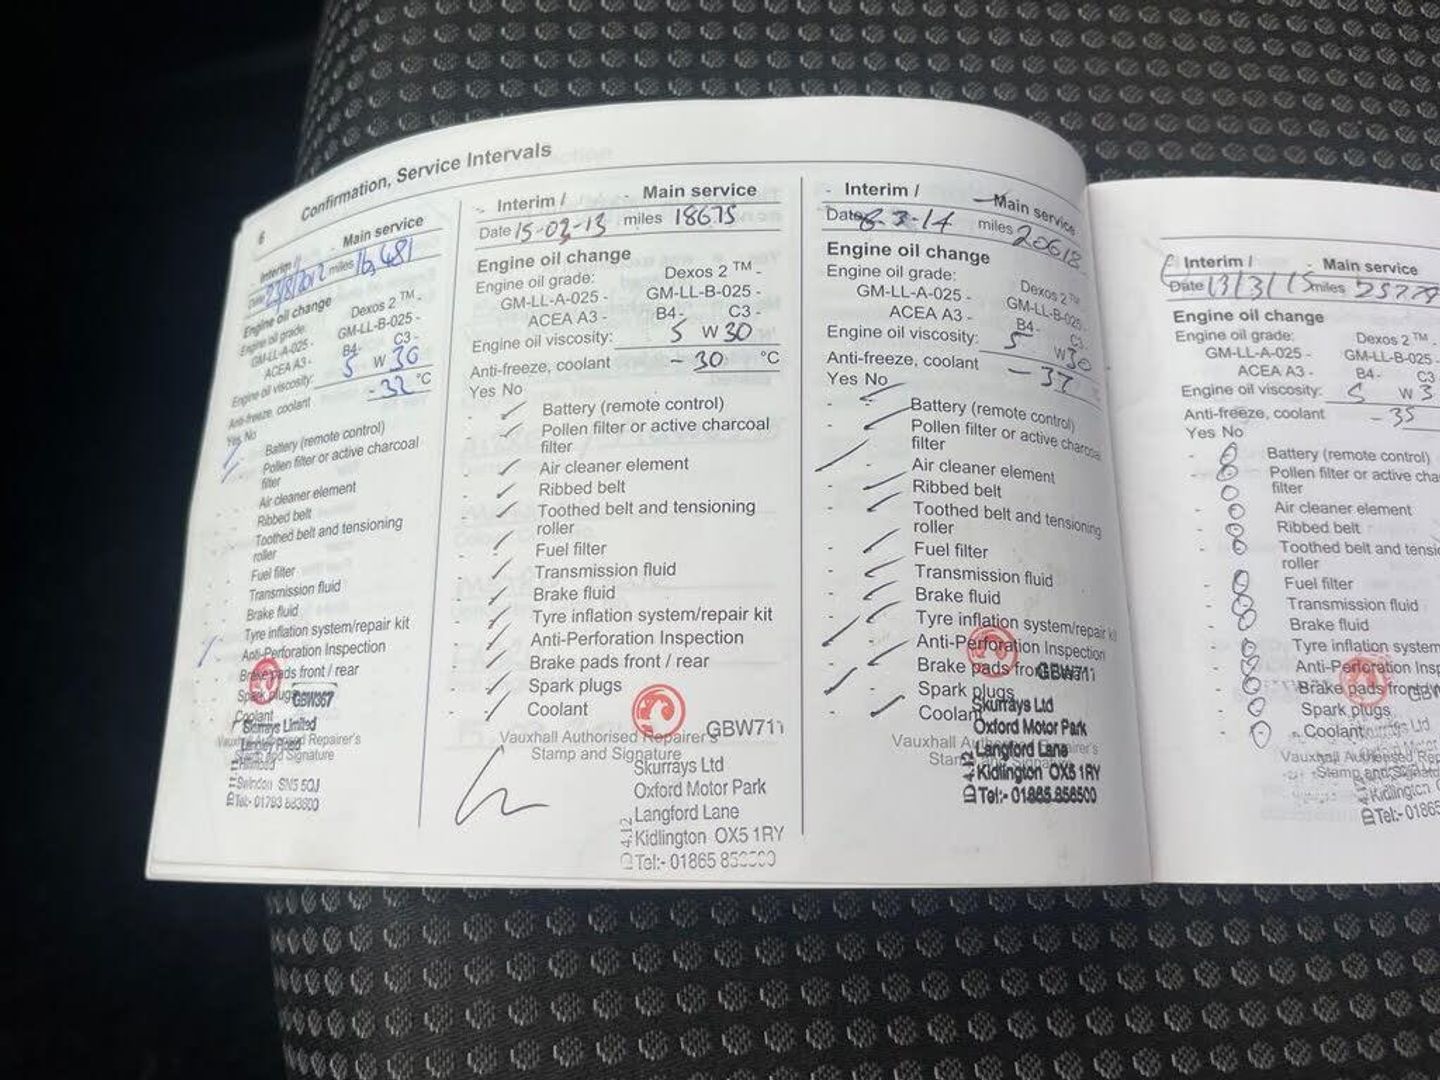 6
Confirmation, Service Intervals
Interim / - Main service
Date 23/8/2012 miles 16,481
Engine oil change
Engine oil grade: Dexos 2 ™ -
GM-LL-A-025 - GM-LL-B-025 -
ACEA A3 - B4- C3 -
Engine oil viscosity: 5 W 30
Anti-freeze, coolant -32 °C
Yes No
Battery (remote control)
Pollen filter or active charcoal
filter
Air cleaner element
Ribbed belt
Toothed belt and tensioning
roller
Fuel filter
Transmission fluid
Brake fluid
Tyre inflation system/repair kit
Anti-Perforation Inspection
Brake pads front / rear
Spark plugs
GBW367
Coolant
Skurrays Limited
Vauxhall Authorised Repairer's
Stamp and Signature
Swindon SN5 5QJ
Tel:- 01793
- Interim / - Main service
Date 15-03-13 miles 18675
Engine oil change
Engine oil grade: Dexos 2 ™ -
GM-LL-A-025 - GM-LL-B-025 -
ACEA A3 - B4 - C3 -
Engine oil viscosity: 5 W 30
Anti-freeze, coolant -30 °C
Yes No
Battery (remote control)
Pollen filter or active charcoal
filter
Air cleaner element
Ribbed belt
Toothed belt and tensioning
roller
Fuel filter
Transmission fluid
Brake fluid
Tyre inflation system/repair kit
Anti-Perforation Inspection
Brake pads front / rear
Spark plugs
Coolant
GBW711
Vauxhall Authorised Repairer's
Stamp and Signature
Skurrays Ltd
Oxford Motor Park
Langford Lane
Kidlington OX5 1RY
Tel:- 01865
- Interim / - Main service
Date 8-3-14 miles 20618
Engine oil change
Engine oil grade: Dexos 2 ™
GM-LL-A-025 - GM-LL-B-025 -
ACEA A3 - B4- C3 -
Engine oil viscosity: 5 W 30
Anti-freeze, coolant -37 °C
Yes No
Battery (remote control)
Pollen filter or active charcoal
filter
Air cleaner element
Ribbed belt
Toothed belt and tensioning
roller
Fuel filter
Transmission fluid
Brake fluid
Tyre inflation system/repair kit
Anti-Perforation Inspection
Brake pads front
GBW711
Spark plugs
Coolant
Skurrays Ltd
Oxford Motor Park
Langford Lane
Kidlington OX5 1RY
Tel:- 01865 856500
Interim / - Main service
Date 13/3/15 miles 25779
Engine oil change
Engine oil grade: Dexos 2 ™
GM-LL-A-025 - GM-LL-B-025
ACEA A3 - B4 - C3
Engine oil viscosity: 5 W 3
Anti-freeze, coolant -35
Yes No
Battery (remote control)
Pollen filter or active cha
filter
Air cleaner element
Ribbed belt
Toothed belt and tensio
roller
Fuel filter
Transmission fluid
Brake fluid
Tyre inflation system
Anti-Perforation Insp
Brake pads front
Spark plugs
Coolant
Vauxhall Authorised Rep
Stamp and Signatu
Kidlington
Tel:- 01865